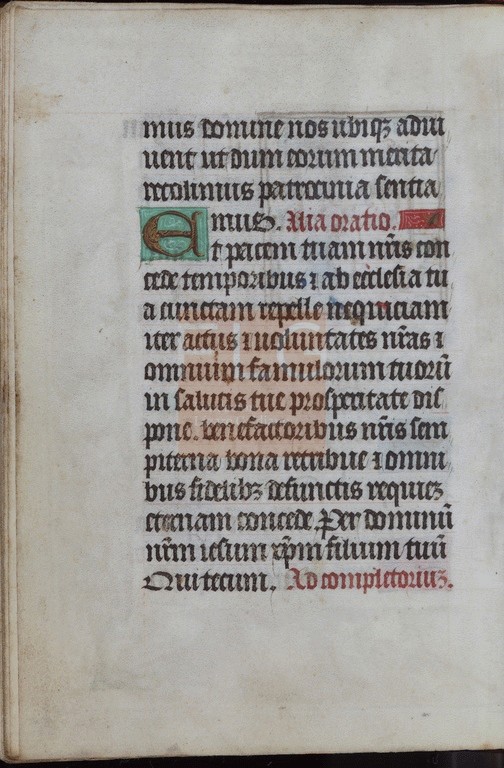 mus domine nos ubiqꝫ adiu
uent ut dum eorum merita
recolimus patrocinia sentia
mus. Alia oratio.
Et pacem tuam nr̄is con
cede temporibus ⁊ ab ecclesia tu
a cunctam repelle nequiciam
iter actus ⁊ uoluntates nr̄as ⁊
omnium famulorum tuorū
in salutis tue prosperitate dis
pone. benefactoribus nr̄is sem
piterna bona retribue ⁊ omni
bus fidelibꝫ defunctis requieꝫ
eternam concede. Per dominū
nr̄m iesum xp̄m filium tuū
Qui tecum. Ad completoriuꝫ.